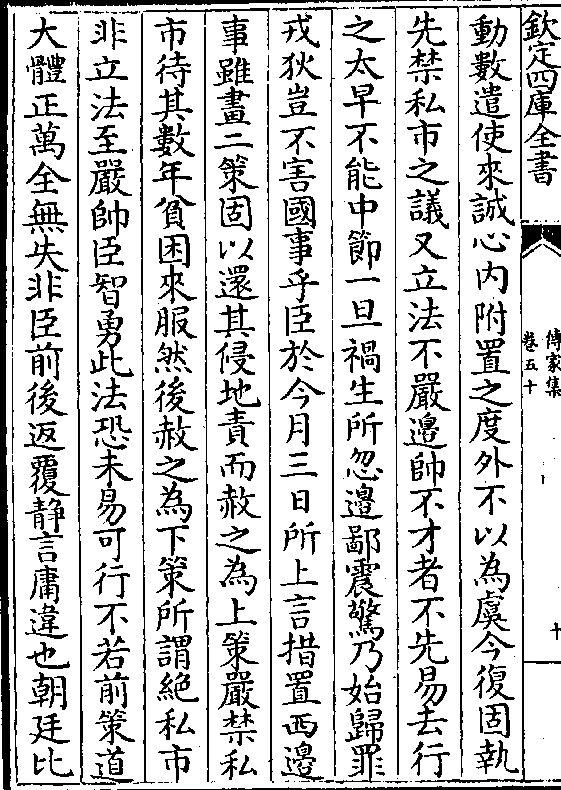 欽定四庫全書
傳家集
卷五十
十
動數遣使來誠心内附置之度外不以為虞今復固執
先禁私市之議又立法不嚴邊帥不才者不先易去行
之太早不能中節一旦禍生所忽邊鄙震驚乃始歸罪
戎狄豈不害國事乎臣於今月三日所上言措置西邊
事雖畫二策固以還其侵地責而赦之為上策嚴禁私
市待其數年貧困來服然後赦之為下策所謂絶私市
非立法至嚴帥臣智勇此法恐未易可行不若前策道
大體正萬全無失非臣前後返覆静言庸違也朝廷比